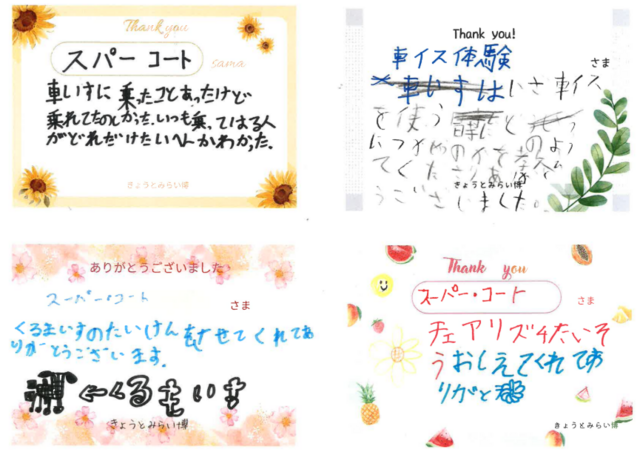 Thank you
スパー コート
sama
車いすに乗ったコとあったけど
乗れてたのしかった。いつも乗ってはる人
がどれだけたいへんかわかった。
きょうとみらい博
Thank you!
車イス体験
さま
車いすは いざ車イス
を使う
につかめのかを
てくださりありがと
うございました。
きょうとみらい博
ありがとうございました
スーパーコート
さま
くるまいすのたいけんをさせてくれてあ
りがとうございます。
←くるまいす
きょうとみらい博
Thank you
スーパー・コート
さま
チェアリズムたいそ
うおしえてくれてあ
りがと
きょうとみらい博